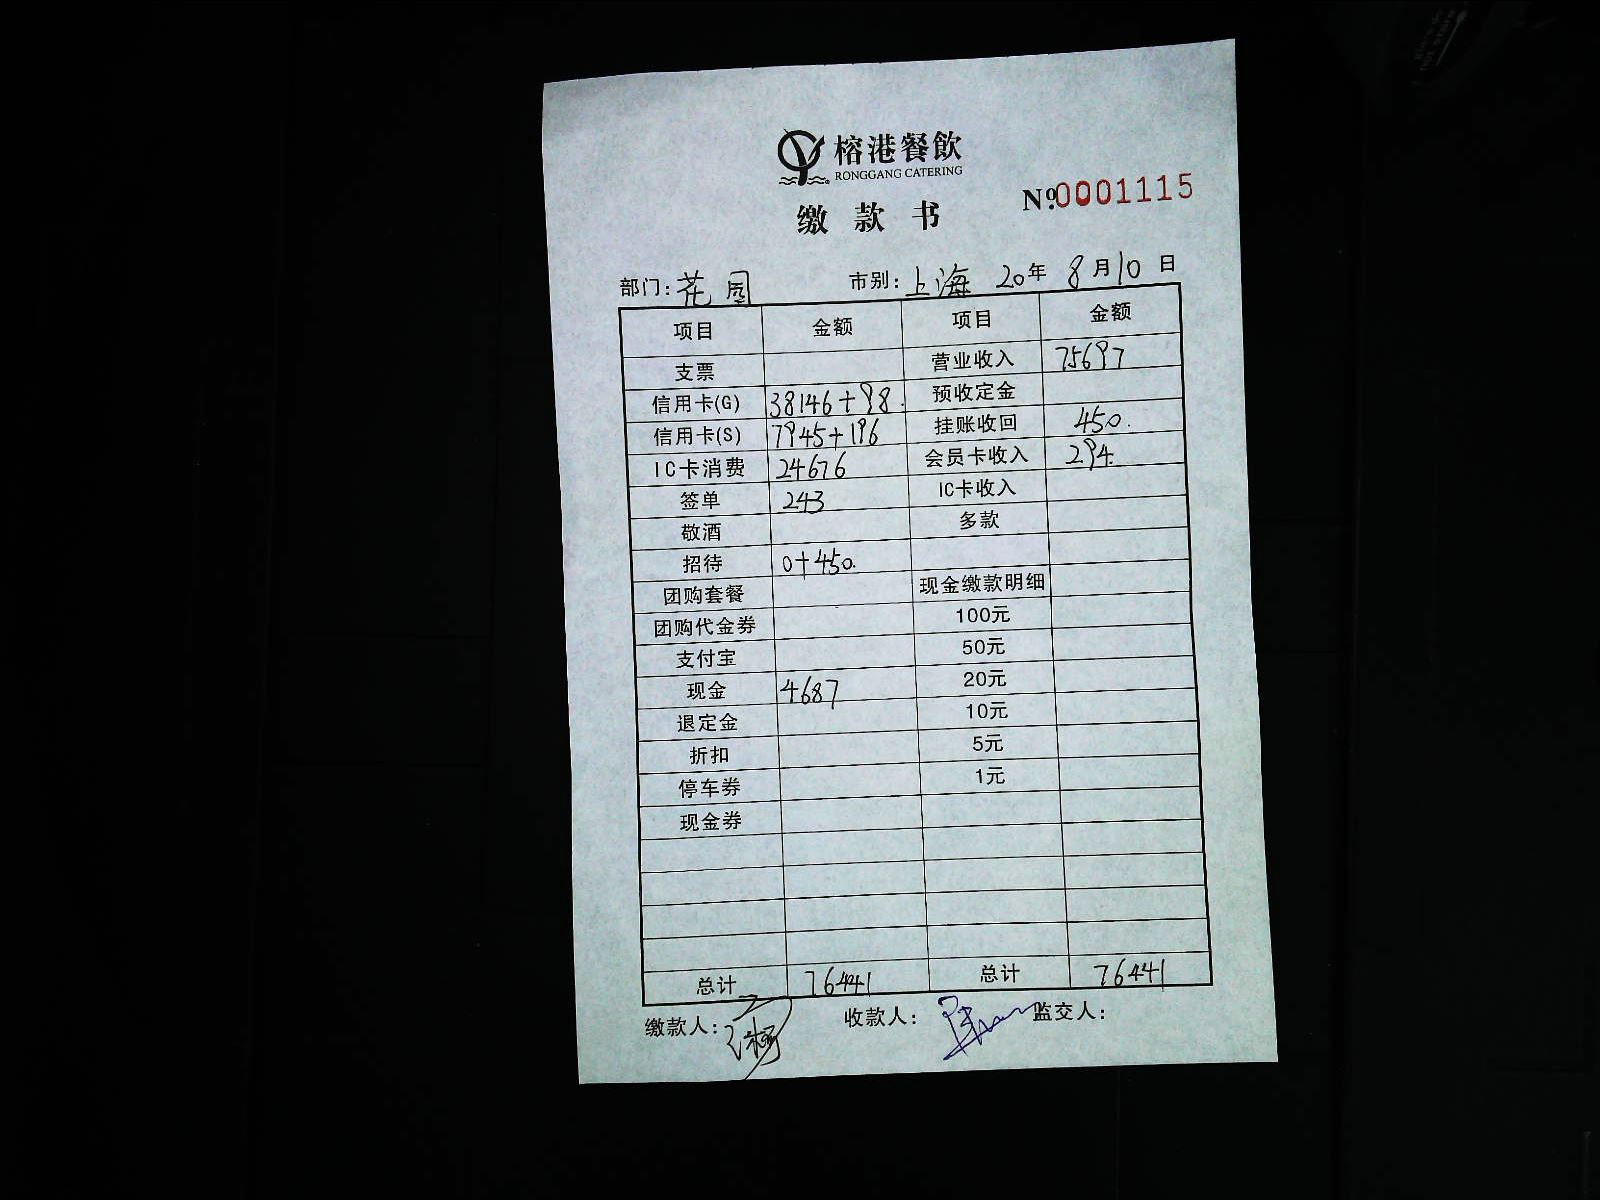 榕港餐飲
RONGGANG CATERING
缴款书
No.0001115
部门：花园 市别：上海 20年 8月10日
项目 金额 项目 金额
支票 营业收入 75697
信用卡(G) 38146+98. 预收定金
信用卡(S) 7945+196 挂账收回 450.
IC卡消费 24676 会员卡收入 294.
签单 243 IC卡收入
敬酒 多款
招待 0+450.
团购套餐 现金缴款明细
团购代金券 100元
支付宝 50元
现金 4687 20元
退定金 10元
折扣 5元
停车券 1元
现金券
总计 76441 总计 76441
缴款人： 收款人： 监交人：